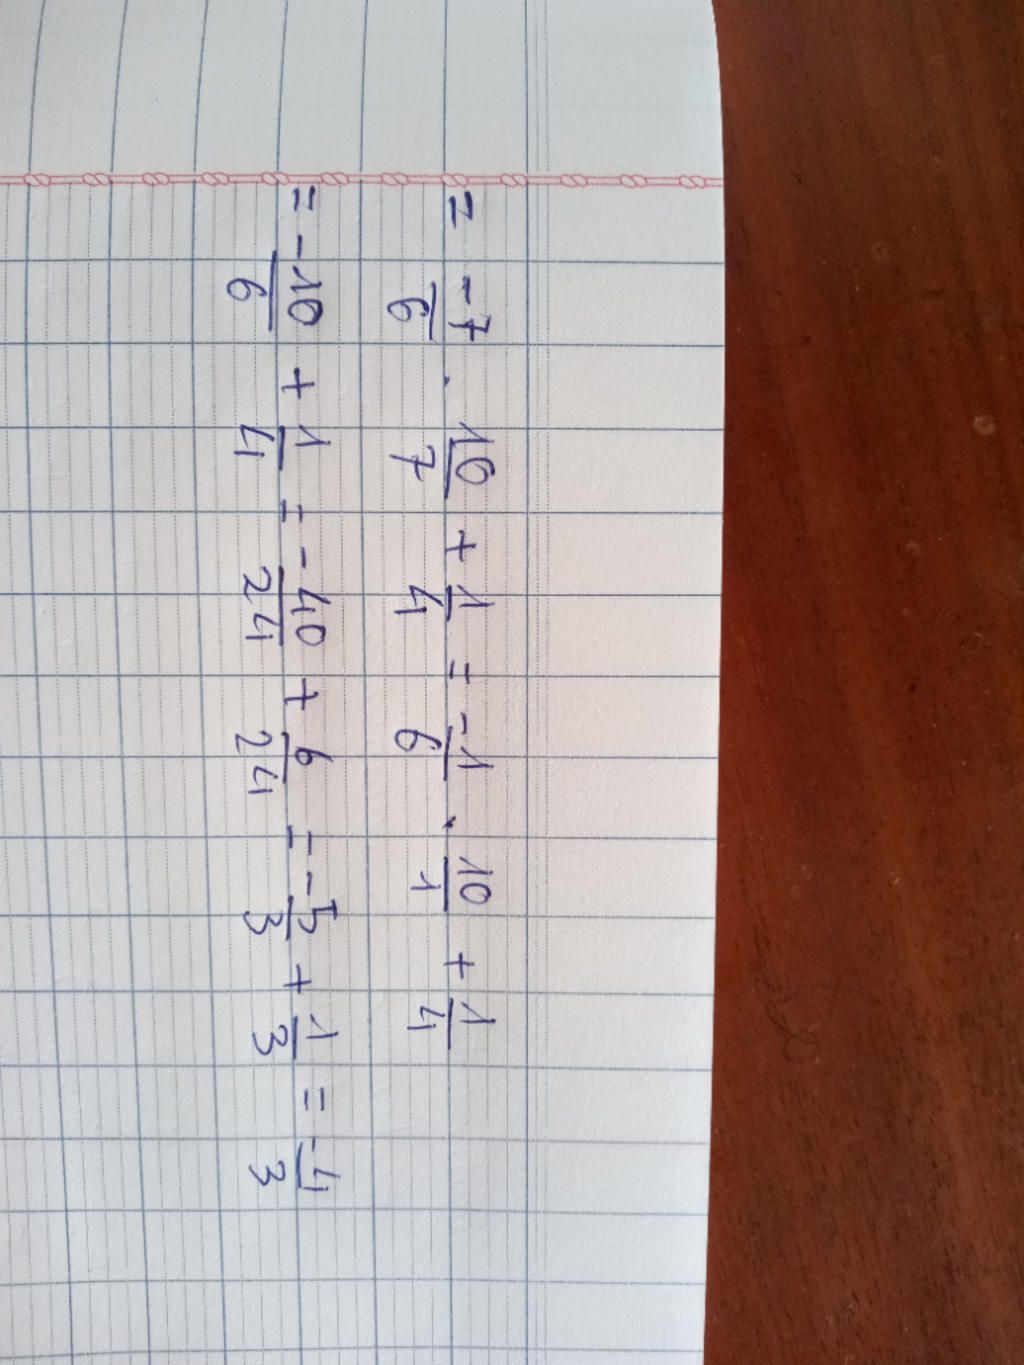 = -7/6 . 10/7 + 1/4 = -1/6 . 10/1 + 1/4
= -10/6 + 1/4 = -40/24 + 6/24 = -5/3 + 1/3 = -4/3